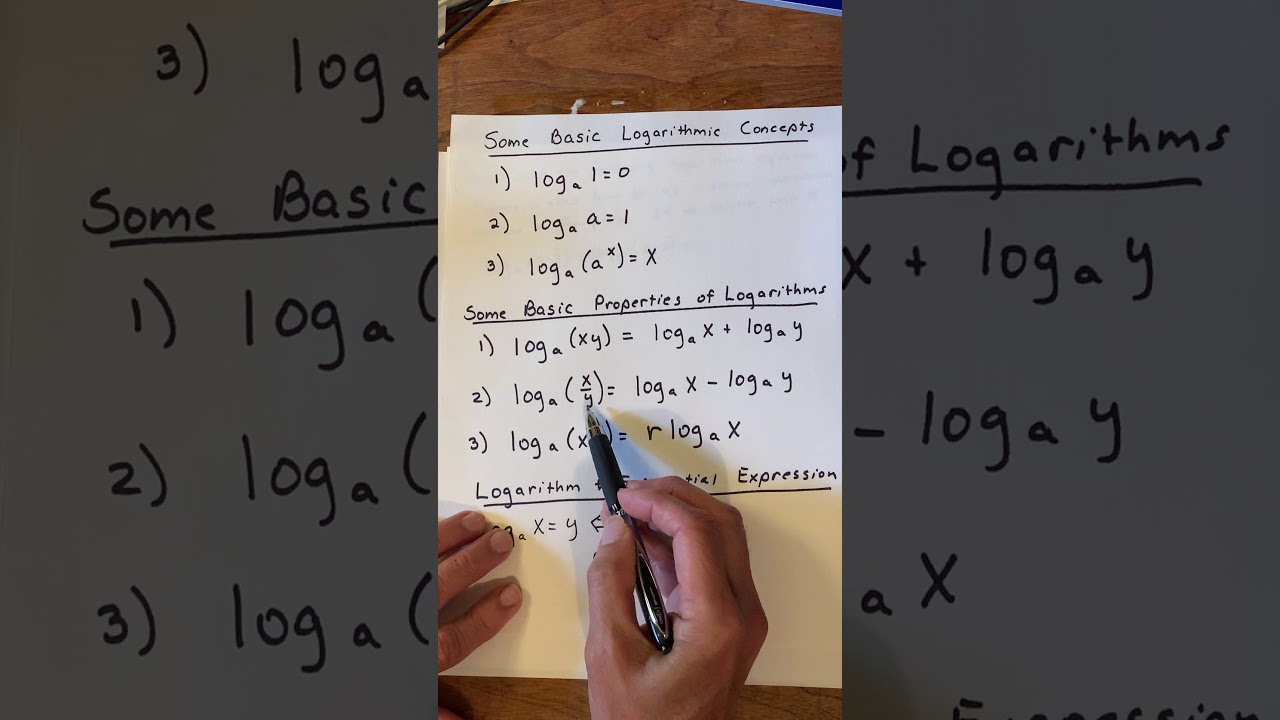 Some Basic Logarithmic Concepts
1) logₐ 1 = 0
2) logₐ a = 1
3) logₐ (aˣ) = x
Some Basic Properties of Logarithms
1) logₐ (xy) = logₐ x + logₐ y
2) logₐ (x/y) = logₐ x - logₐ y
3) logₐ (x ) = r logₐ x
Logarithm Expression
x = y